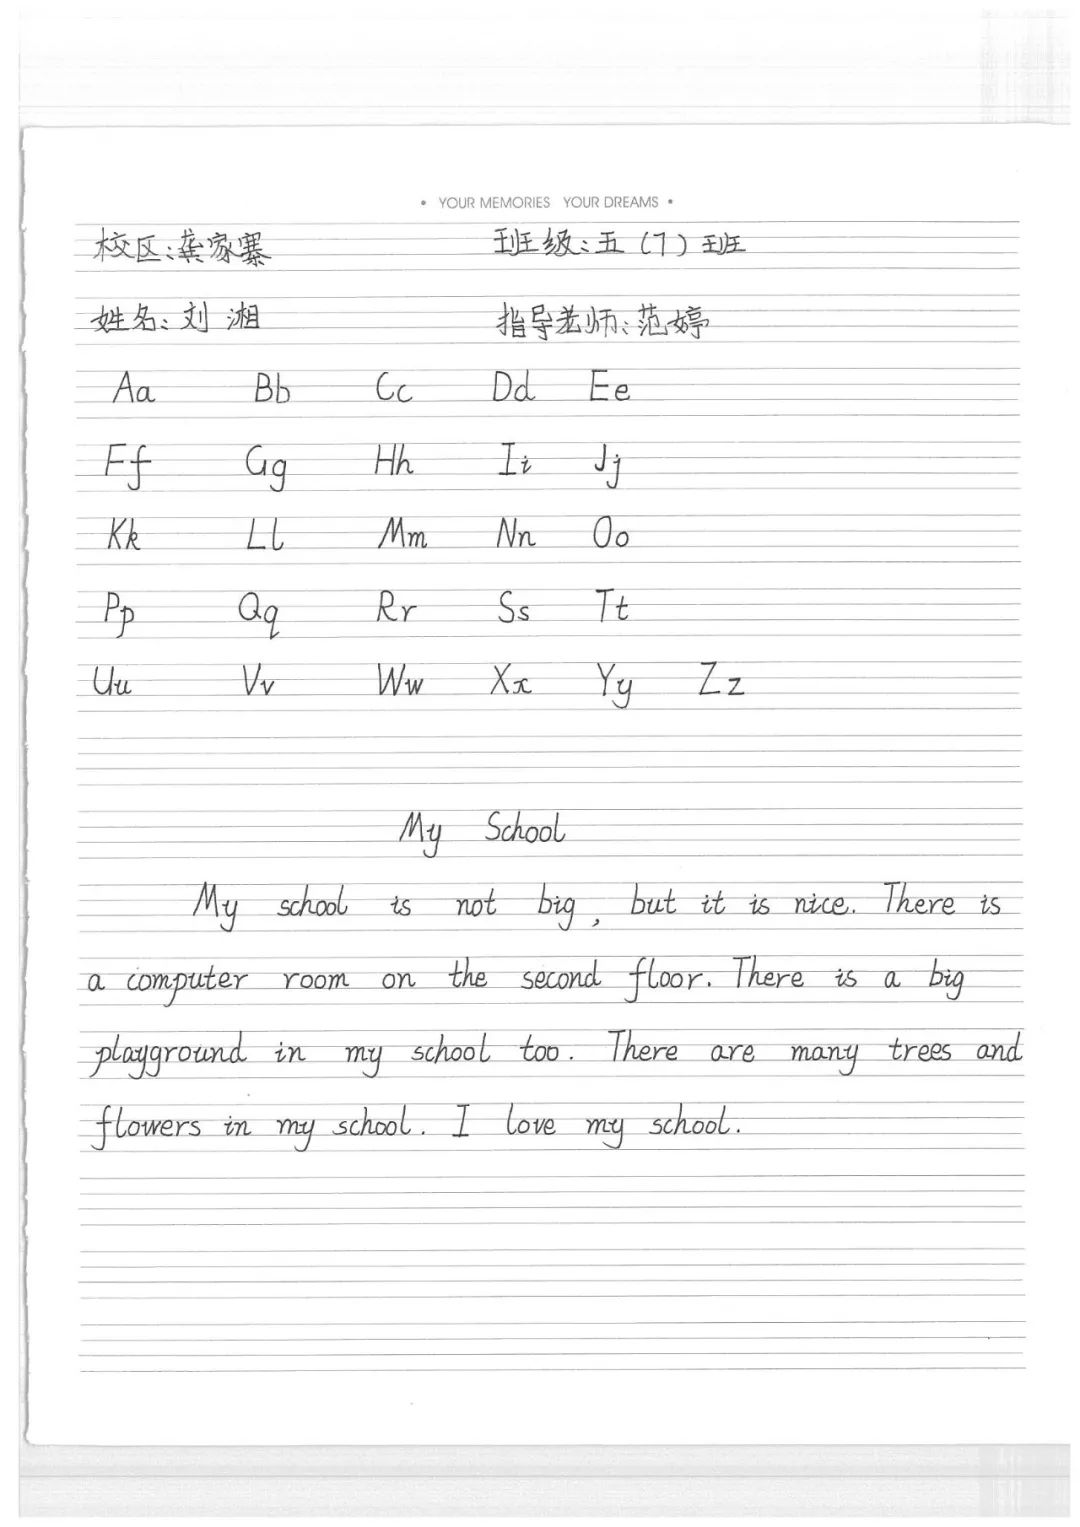 • YOUR MEMORIES YOUR DREAMS •
校区:龚家寨 班级:五(7)班
姓名:刘湘 指导老师:范婷
Aa Bb Cc Dd Ee
Ff Gg Hh Ii Jj
Kk Ll Mm Nn Oo
Pp Qq Rr Ss Tt
Uu Vv Ww Xx Yy Zz
My School
My school is not big, but it is nice. There is
a computer room on the second floor. There is a big
playground in my school too. There are many trees and
flowers in my school. I love my school.